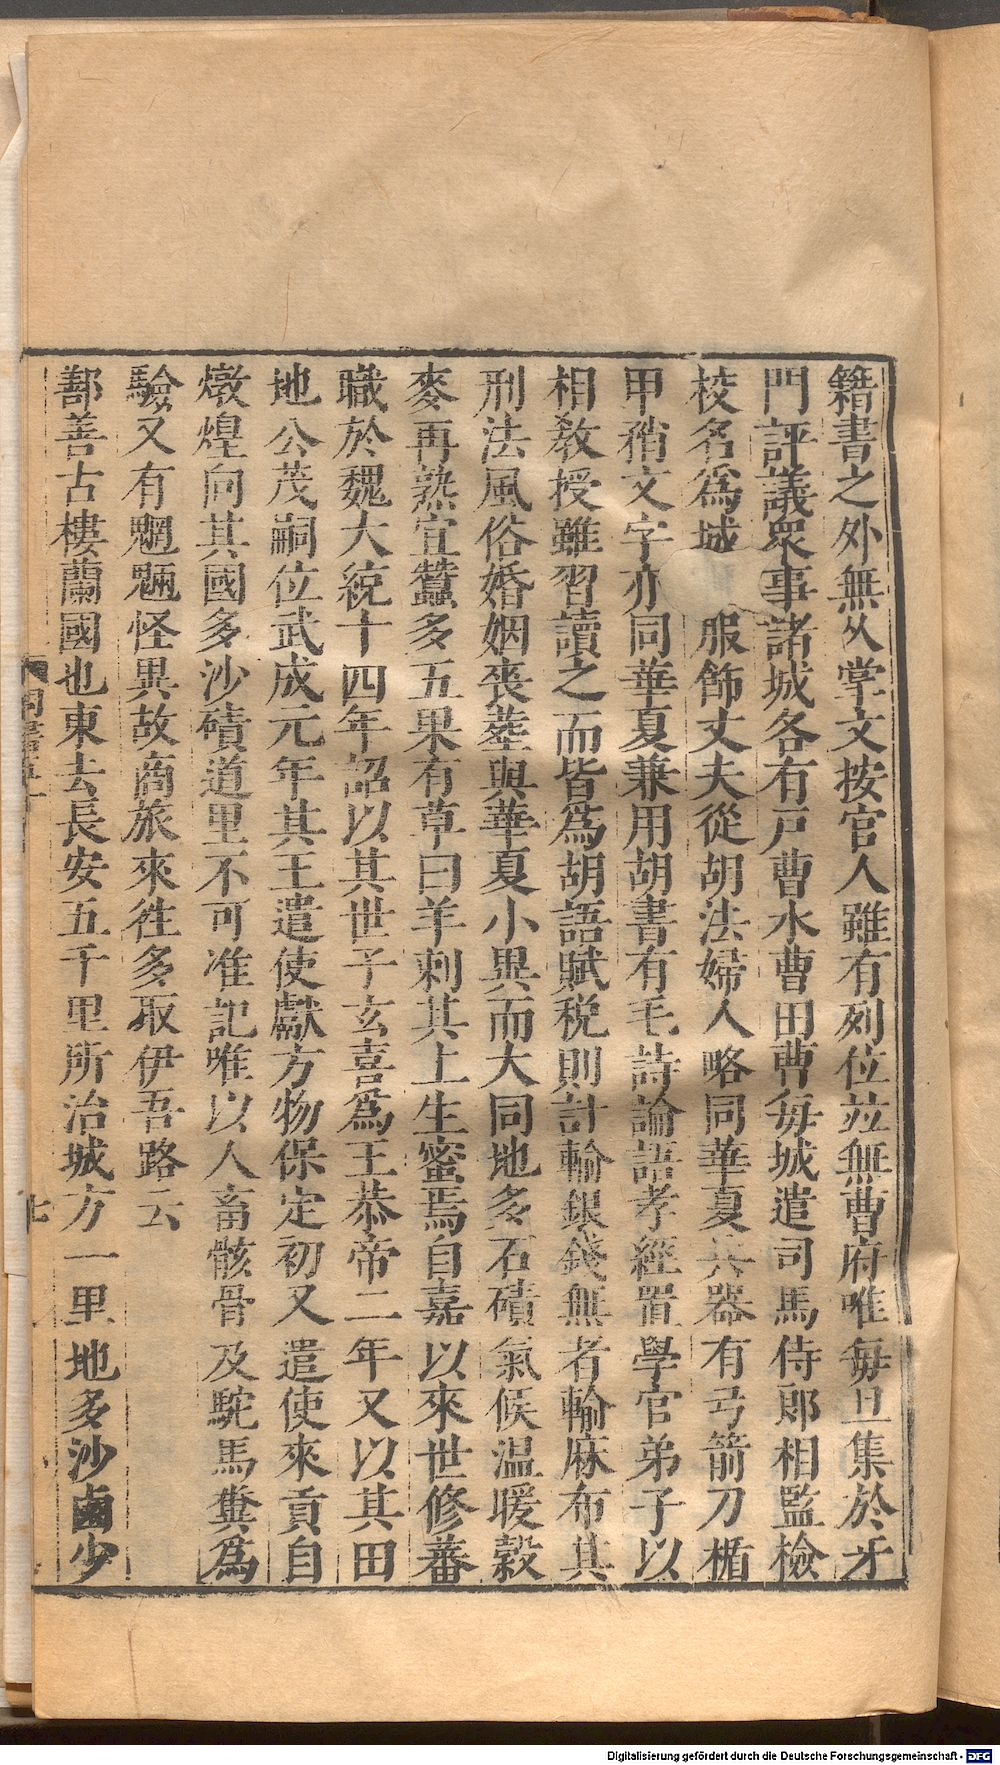 籍書之外無乆掌文按官人雖有列位竝無曹府唯毎旦集於牙
門評議衆事諸城各有戸曹水曹田曹毎城遣司馬侍郎相監檢
校名爲城 服飾丈夫從胡法婦人略同華夏兵器有弓箭刀楯
甲矟文字亦同華夏兼用胡書有毛詩論語孝經置學官弟子以
相敎授雖習讀之而皆爲胡語賦稅則計輸銀錢無者輸麻布其
刑法風俗婚姻喪葬與華夏小異而大同地多石磧氣候温暖穀
麥再熟宜蠶多五果有草曰羊刺其上生蜜焉自嘉以來世修蕃
職於魏大統十四年詔以其世子玄喜爲王恭帝二年又以其田
地公茂嗣位武成元年其王遣使獻方物保定初又遣使來貢自
燉煌向其國多沙磧道里不可准記唯以人畜骸骨及駝馬糞爲
驗又有魍魎怪異故商旅來徃多取伊吾路云
鄯善古樓蘭國也東去長安五千里所治城方一里地多沙鹵少
七
Digitalisierung gefördert durch die Deutsche Forschungsgemeinschaft - DFG